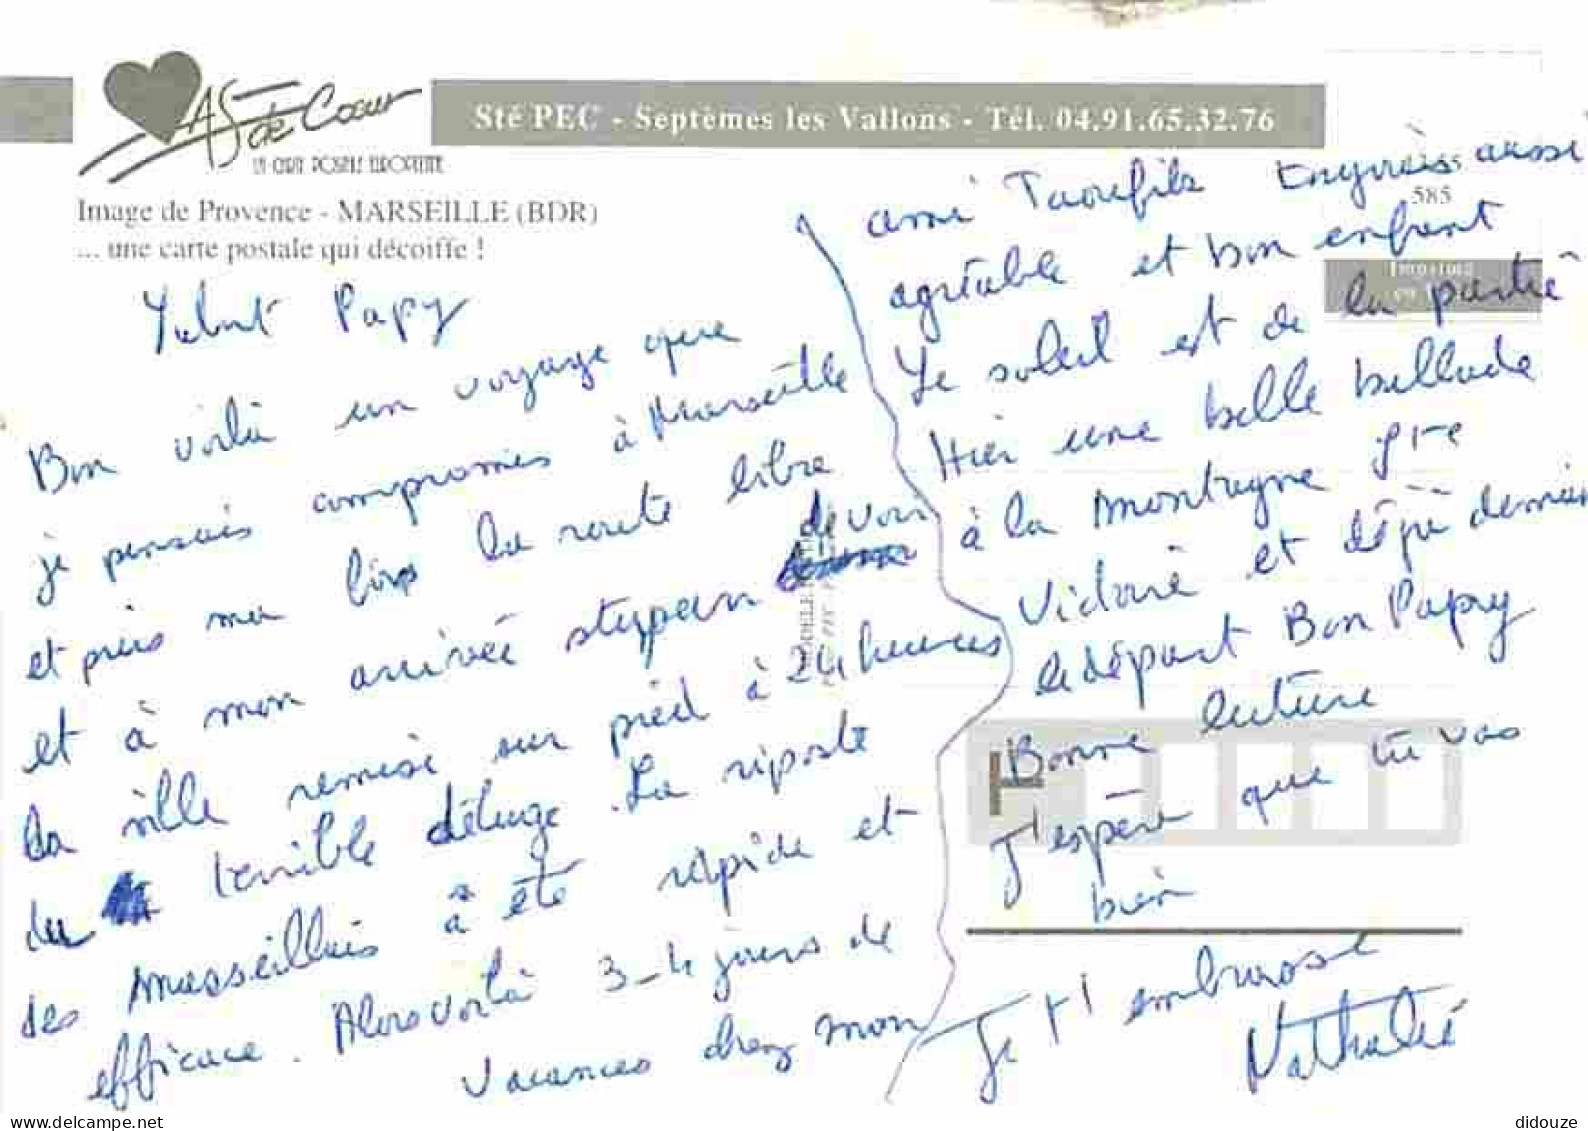 As de Cœur
Sté PEC - Septèmes les Vallons - Tél. 04.91.65.32.76
Image de Provence - MARSEILLE (BDR)
... une carte postale qui décoiffe !
585
Salut Papy
Bon voilà un voyage que
je pensais compromis à Marseille
et puis ma la route libre
et à mon arrivée de voir
la ville remise sur pied à 24 heures
du terrible déluge. La riposte
des Marseillais à été rapide et
efficace. Alors voilà 3-4 jours de
vacances chez mon
ami Taoufik aussi
agréable et bon enfant
Le soleil est de la partie
Hier une belle ballade
à la montagne Ste
Victoire et déjà demain
le départ Bon Papy
Bonne lecture
J'espère que tu vas
bien
Je t'embrasse
Nathalie
delcampe.net
didouze